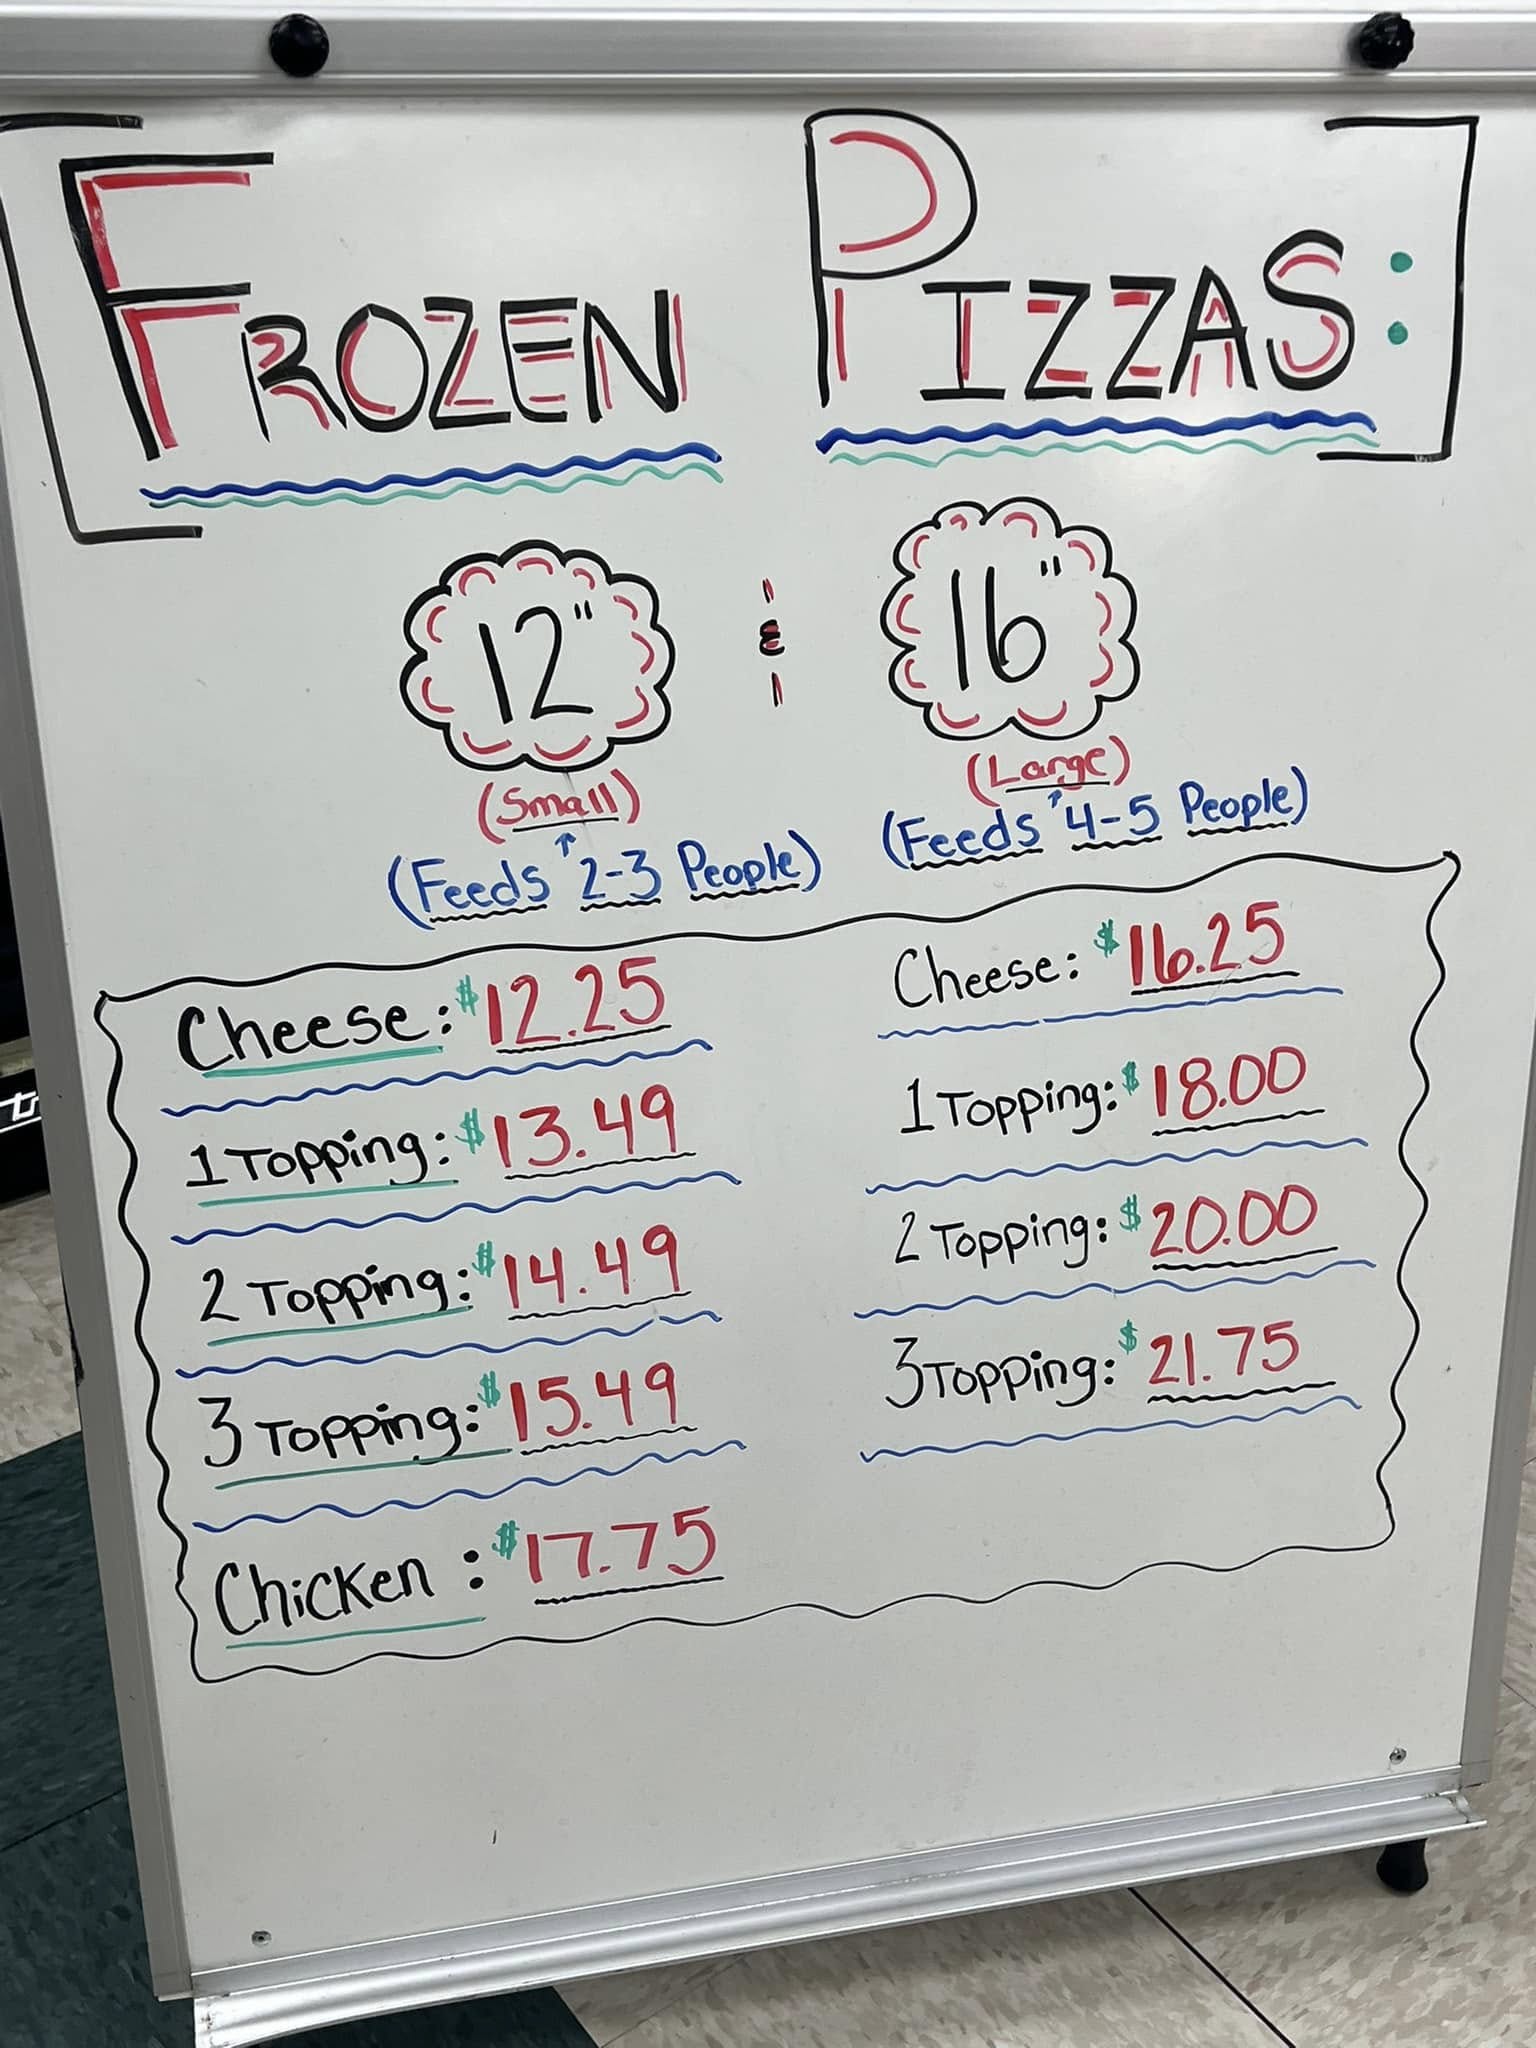 FROZEN PIZZAS:
12" & 16"
(Small) (Large)
(Feeds 2-3 People) (Feeds 4-5 People)
Cheese: $12.25
1 Topping: $13.49
2 Topping: $14.49
3 Topping: $15.49
Chicken: $17.75
Cheese: $16.25
1 Topping: $18.00
2 Topping: $20.00
3 Topping: $21.75